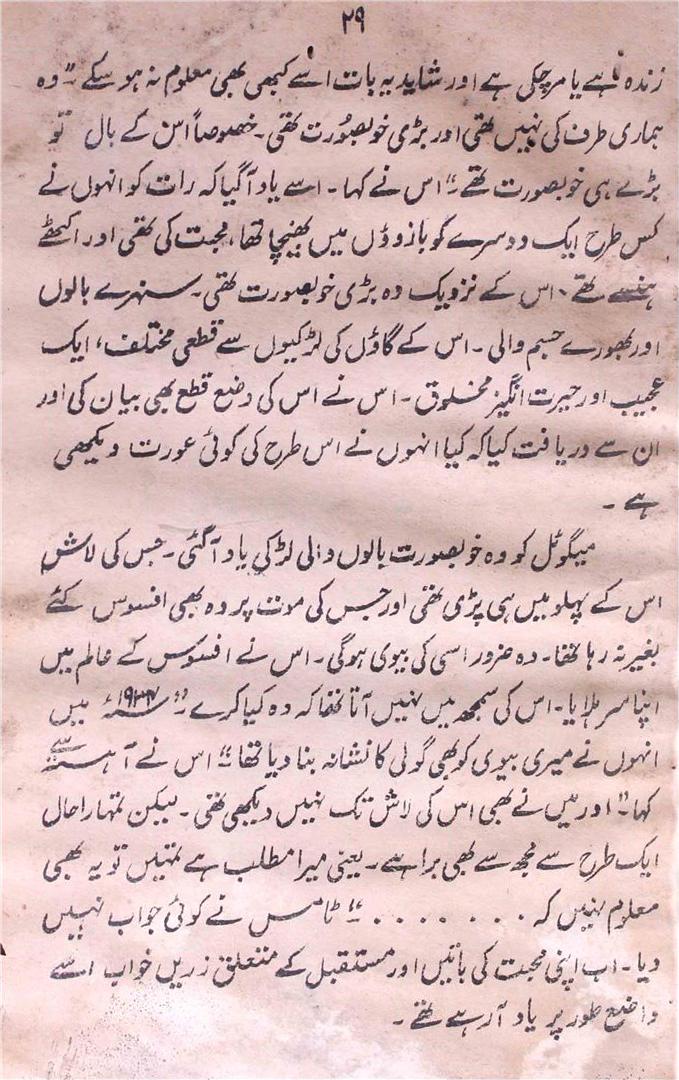 ۲۹
زندہ ہے یا مر چکی ہے اور شاید یہ بات اسے کبھی بھی معلوم نہ ہو سکے "وہ
ہماری طرف کی نہیں تھی اور بڑی خوبصورت تھی۔ خصوصاً اس کے بال تو
بڑے ہی خوبصورت تھے" اس نے کہا۔ اسے یاد آگیا کہ رات کو انہوں نے
کس طرح ایک دوسرے کو بازوؤں میں بھینچا تھا، محبت کی تھی اور اکھٹے
ہنسے تھے۔ اس کے نزدیک وہ بڑی خوبصورت تھی۔ سنہرے بالوں
اور بھورے جسم والی۔ اس کے گاؤں کی لڑکیوں سے قطعی مختلف، ایک
عجیب اور حیرت انگیز مخلوق۔ اس نے اس کی وضع قطع بھی بیان کی اور
ان سے دریافت کیا کہ کیا انہوں نے اس طرح کی کوئی عورت دیکھی
ہے۔
میگوئل کو وہ خوبصورت بالوں والی لڑکی یاد آگئی۔ جس کی لاش
اس کے پہلو میں ہی پڑی تھی اور جس کی موت پر وہ بھی افسوس کئے
بغیر نہ رہا تھا۔ وہ ضرور اسی کی بیوی ہوگی۔ اس نے افسوس کے عالم میں
اپنا سر ہلایا۔ اس کی سمجھ میں نہیں آتا تھا کہ وہ کیا کرے۔ "سنہ ۱۹۳۷ء میں
انہوں نے میری بیوی کو بھی گولی کا نشانہ بنا دیا تھا" اس نے آہستہ سے
کہا۔ "اور میں نے بھی اس کی لاش تک نہیں دیکھی تھی۔ لیکن تمہارا حال
ایک طرح سے مجھ سے بھی برا ہے۔ یعنی میرا مطلب ہے تمہیں تو یہ بھی
معلوم نہیں کہ ........" ٹامس نے کوئی جواب نہیں
دیا۔ اب اپنی محبت کی باتیں اور مستقبل کے متعلق زریں خواب اسے
واضح طور پر یاد آرہے تھے۔